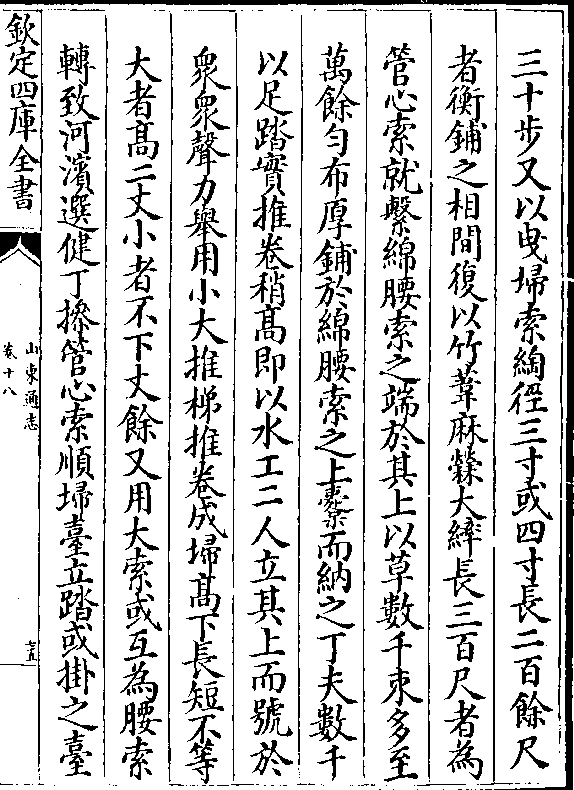 三十步又以曵埽索綯徑三寸或四寸長二百餘尺
者衡鋪之相間復以竹葦麻檾大繂長三百尺者為
管心索就繫綿腰索之端於其上以草數千束多至
萬餘勻布厚鋪於綿腰索之上橐而納之丁夫數千
以足踏實推卷稍髙即以水工二人立其上而號於
衆衆聲力舉用小大推梯推卷成埽髙下長短不等
大者髙二丈小者不下丈餘又用大索或互為腰索
轉致河濱選健丁操管心索順埽臺立踏或掛之臺
欽定四庫全書
山東通志
卷十八